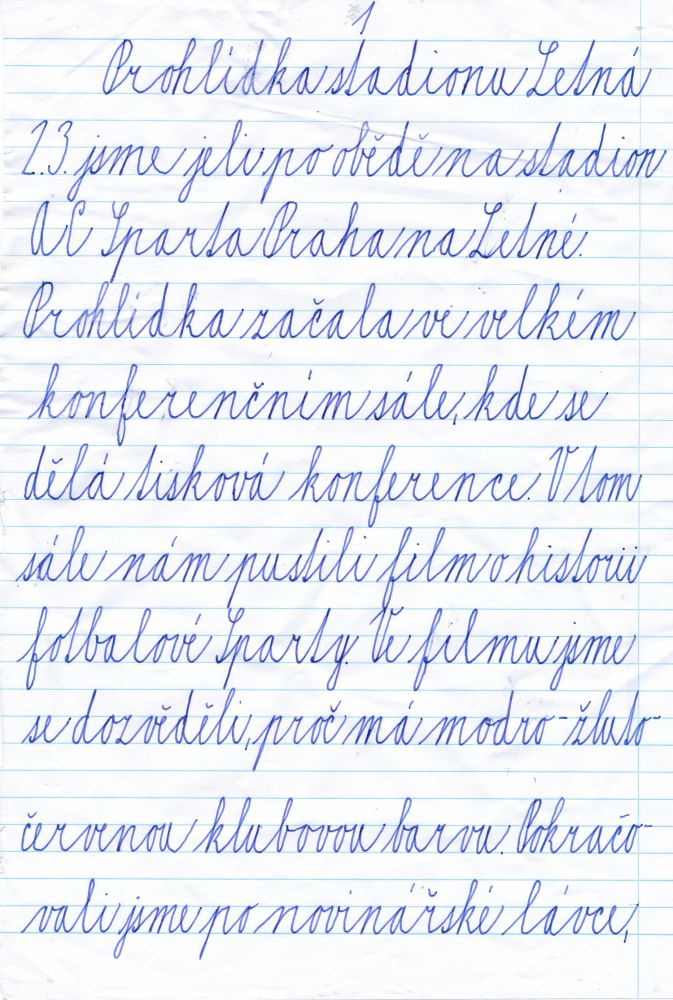 1
Prohlídka stadionu Letná
2.3. jsme jeli po obědě na stadion
AC Sparta Praha na Letné.
Prohlídka začala ve velkém
konferenčním sále, kde se
dělá tisková konference. V tom
sále nám pustili film o historii
fotbalové Sparty. Ve filmu jsme
se dozvěděli, proč má modro-žluto-
červenou klubovou barvu. Pokračo-
vali jsme po novinářské lávce,